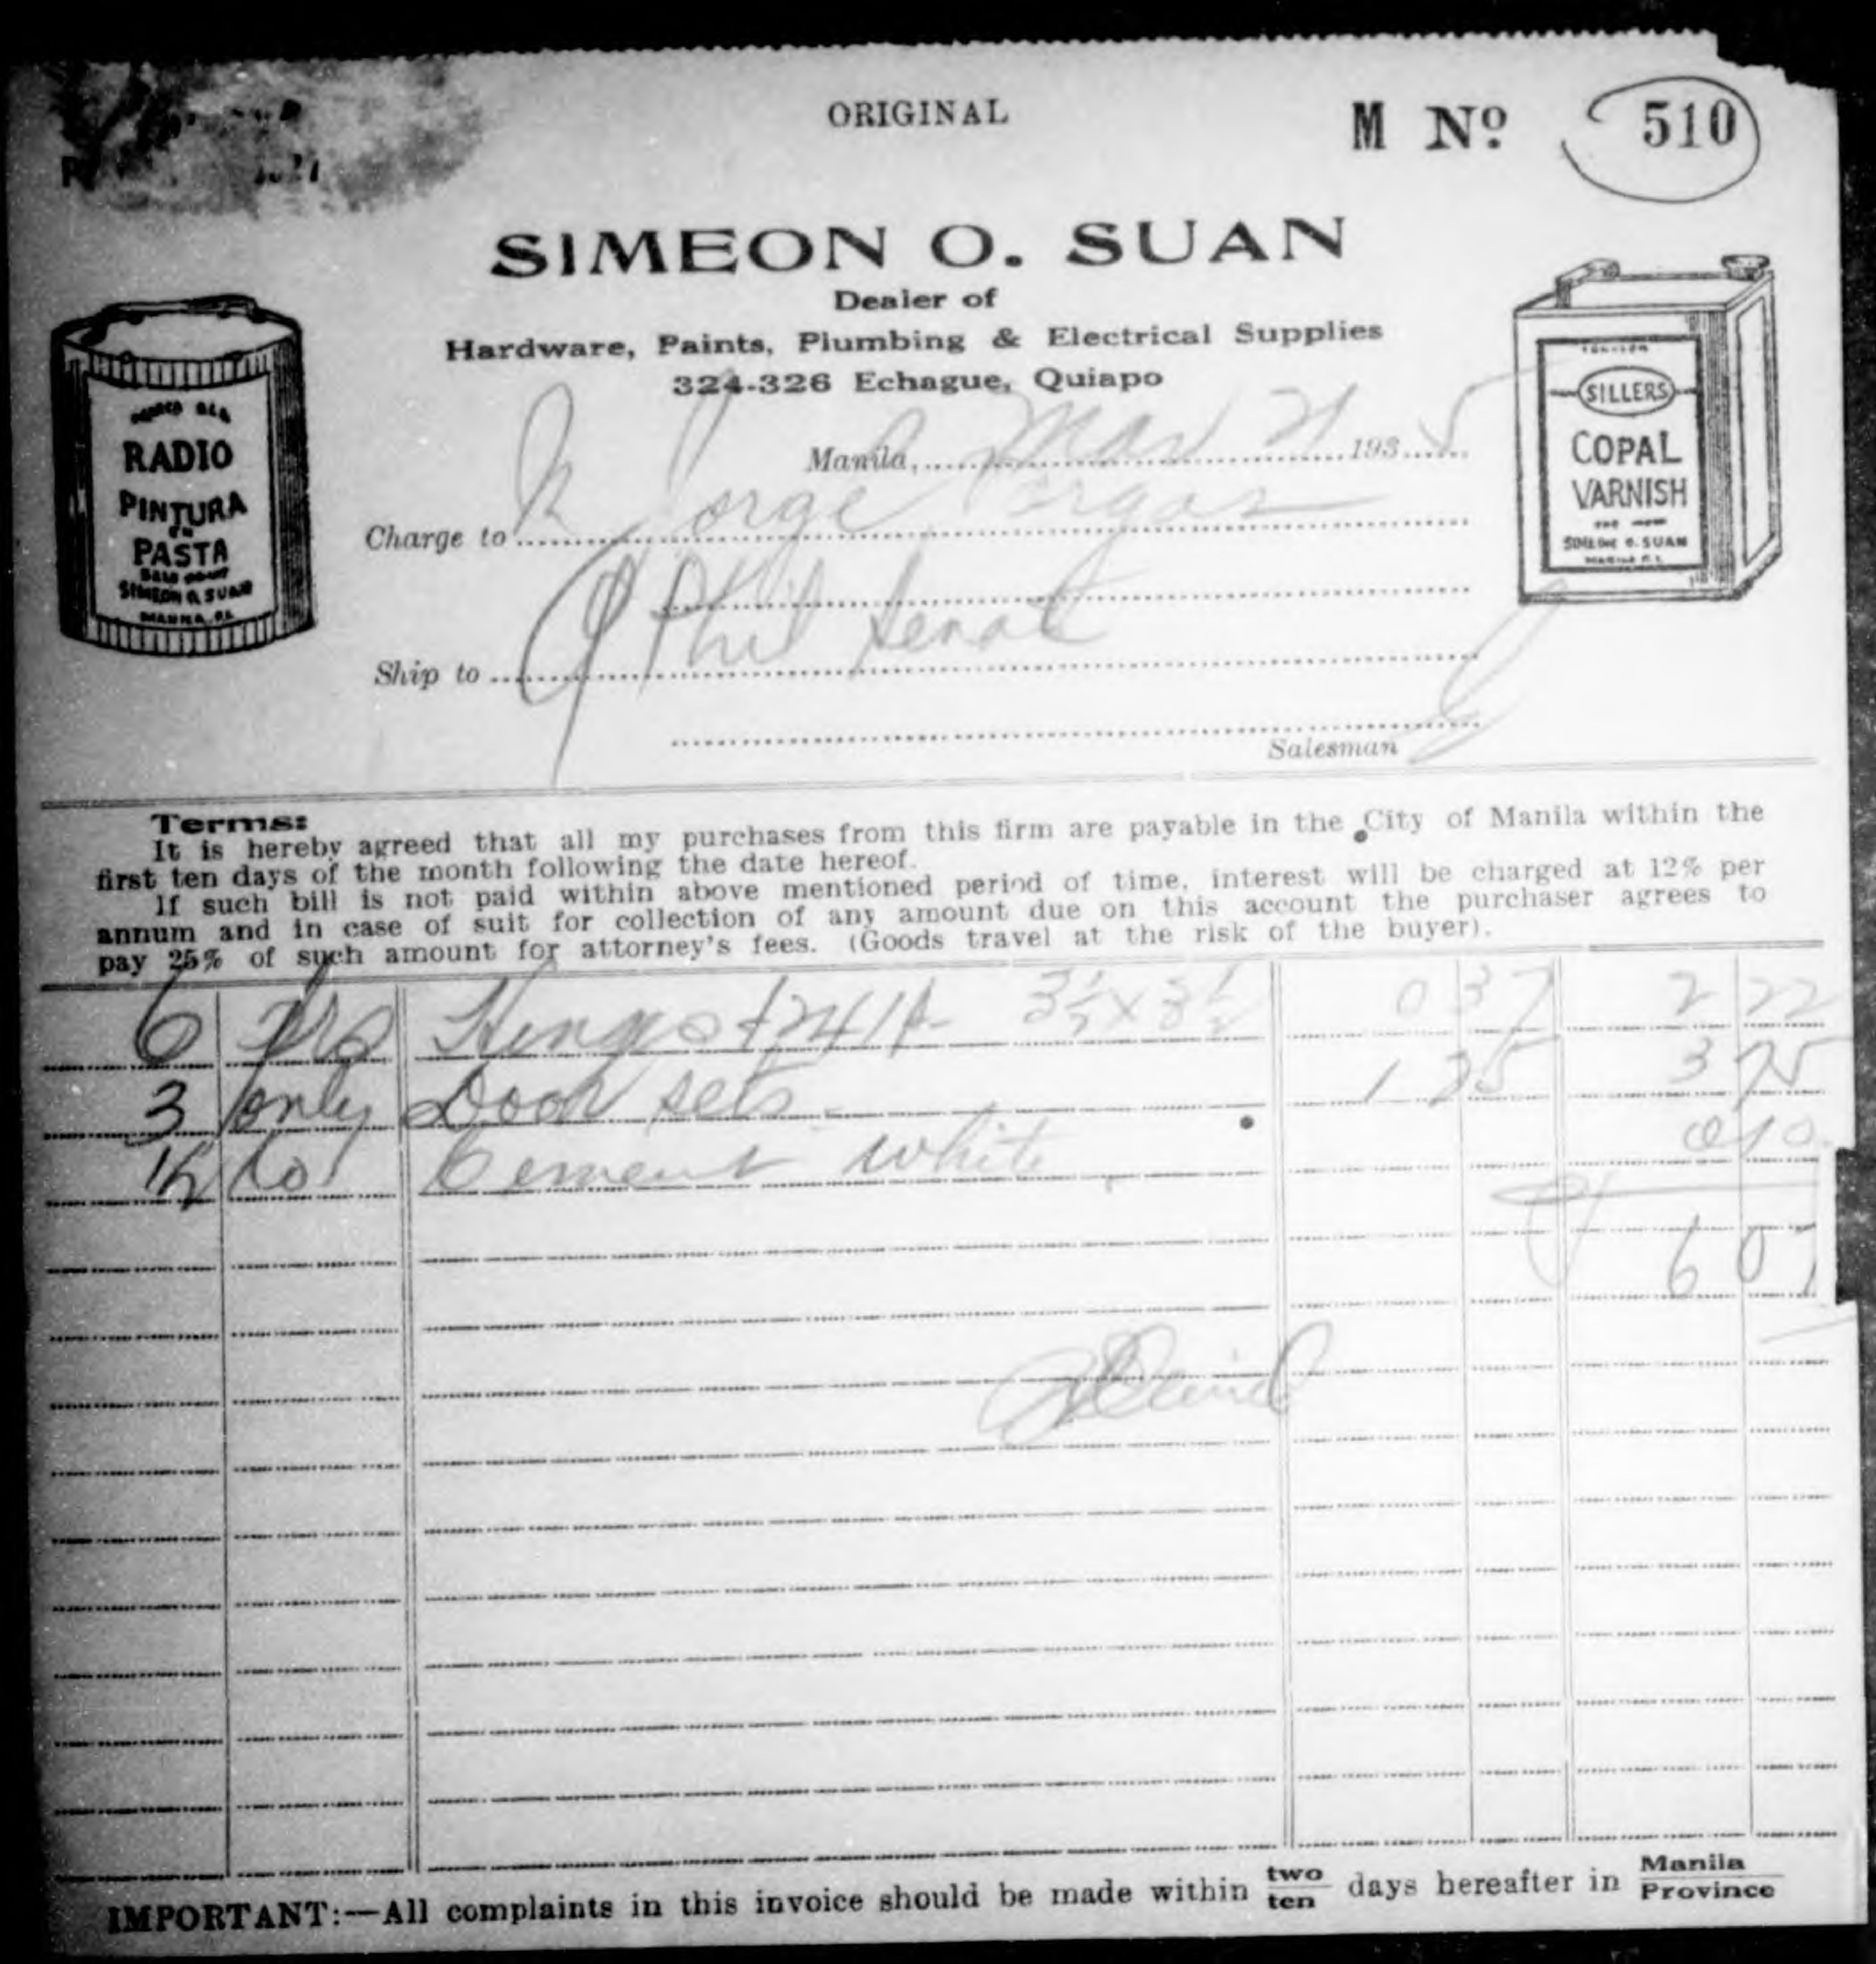 ORIGINAL
M Nº 510
SIMEON O. SUAN
Dealer of
Hardware, Paints, Plumbing & Electrical Supplies
324-326 Echague, Quiapo
RADIO
PINTURA
EN
PASTA
SIMEON O. SUAN
MANILA, P.I.
SILLERS
COPAL
VARNISH
SIMEON O. SUAN
MANILA P.I.
Manila, Mar 21 1935
Charge to Jorge Vargas
Phil Senate
Ship to
Salesman
Terms:
It is hereby agreed that all my purchases from this firm are payable in the City of Manila within the
first ten days of the month following the date hereof.
If such bill is not paid within above mentioned period of time, interest will be charged at 12% per
annum and in case of suit for collection of any amount due on this account the purchaser agrees to
pay 25% of such amount for attorney's fees. (Goods travel at the risk of the buyer).
6 prs Hinges 241 3½ x 3½ 0 37 2 22
3 only Door sets 1 25 3 75
½ ko Cement white 0 10
6 07
IMPORTANT:—All complaints in this invoice should be made within two/ten days hereafter in Manila/Province